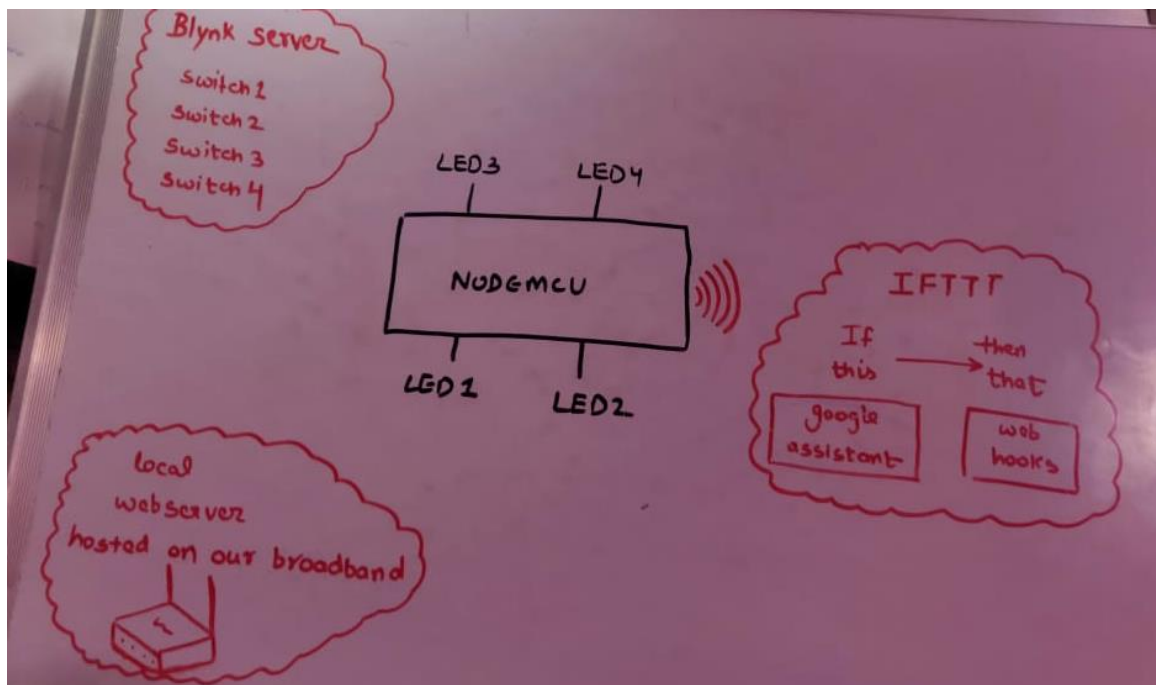 Blynk server
Switch1
Switch 2
Switch 3
Switch 4
LED3
LED4
NODEMCU
LED1
LED2
IFTTT
If
this
then
that
google
assistant
web
hooks
local
webserver
hosted on our broadband